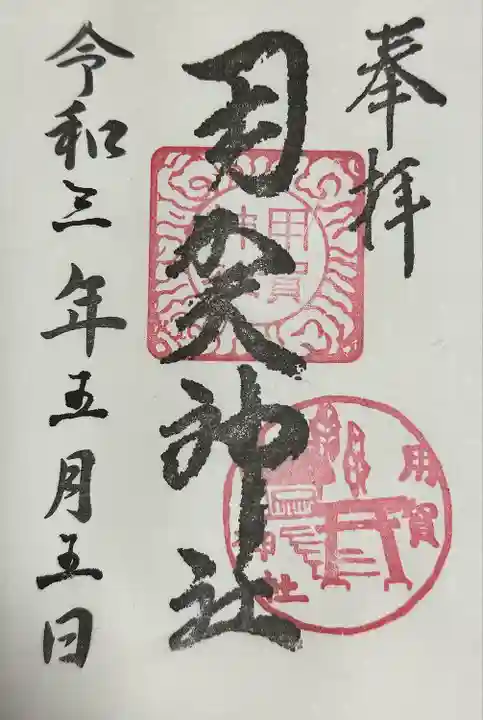 奉拝
用賀神社
令和三年五月五日
用賀
神社
用賀
神社